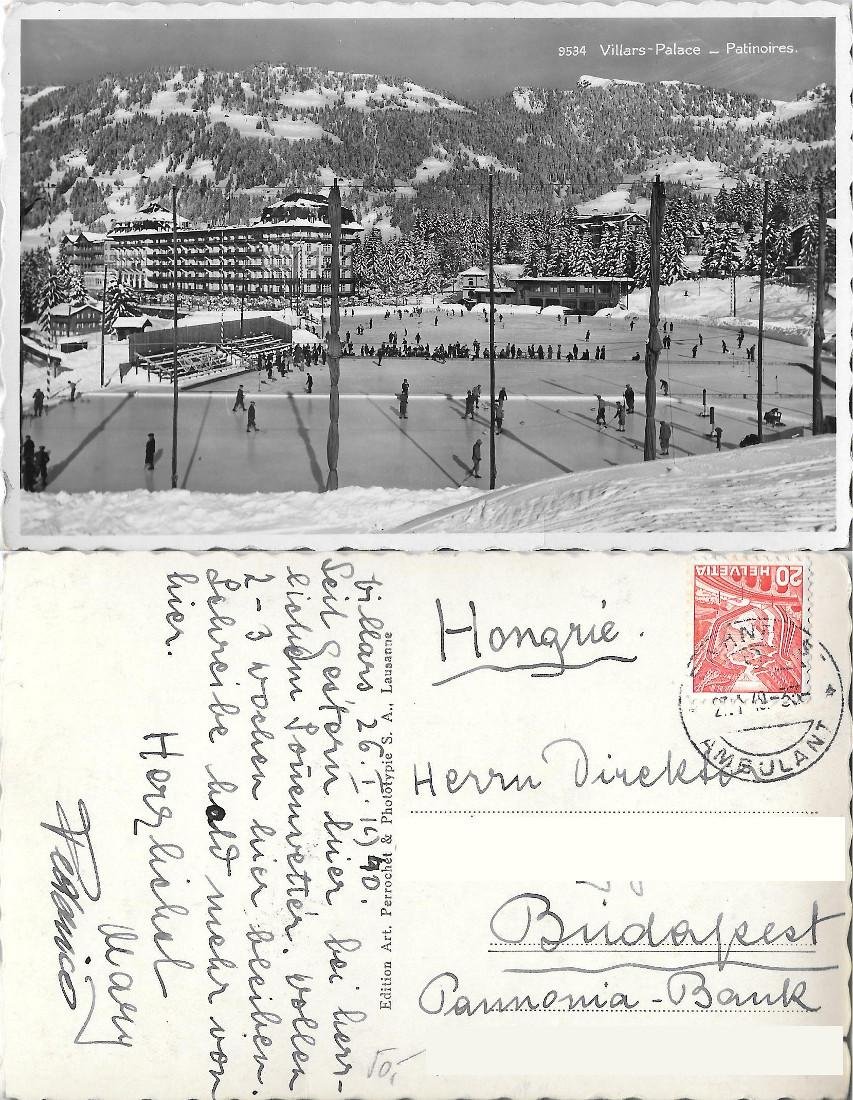 9534 Villars-Palace — Patinoires.
Villars 26. I. 1940.
Seit gestern hier bei herr-
lichem Sonnenwetter. Wollen
2-3 Wochen hier bleiben.
Schreibe bald mehr von
hier.
Herzlichst
Mary
Edition Art. Perrochet & Phototypie S. A., Lausanne
HELVETIA
20
AMBULANT
Hongrie.
Herrn Direktor
Budapest
Pannonia-Bank
10,-